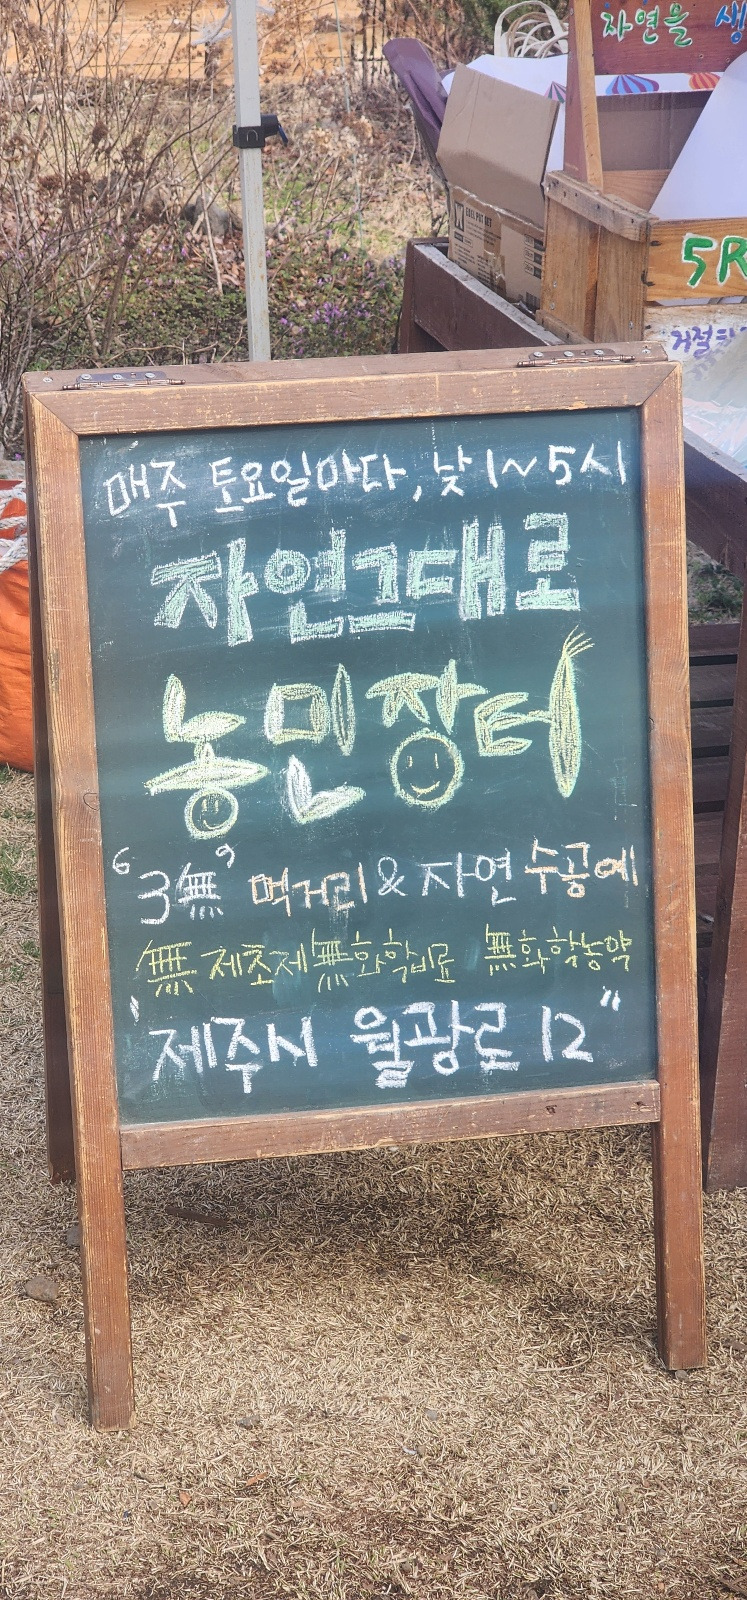 자연을 생
5R
거절
매주 토요일마다, 낮 1~5시
자연그대로
농민장터
“3無” 먹거리 & 자연 수공예
無제초제 無화학비료 無화학농약
"제주시 월광로 12"